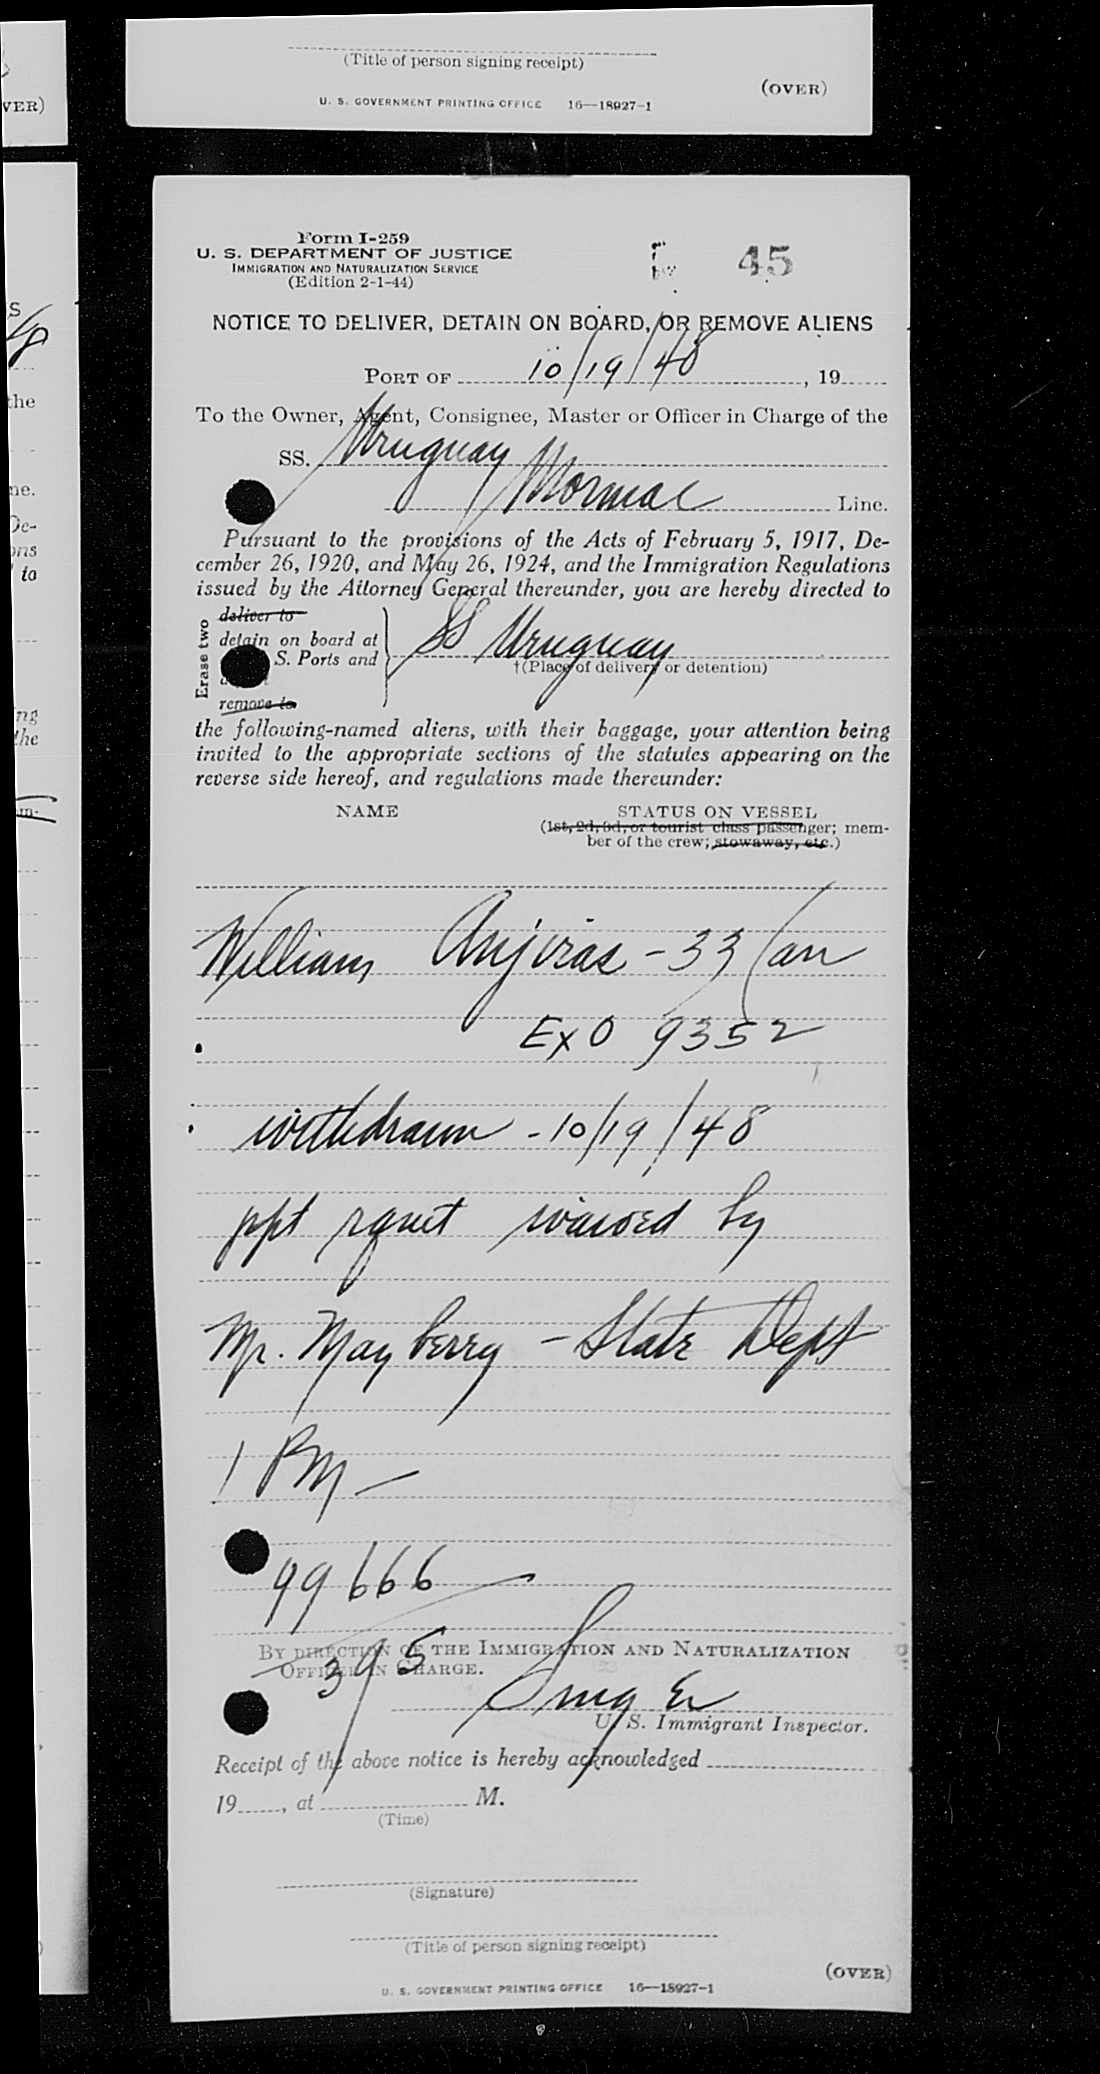 (Title of person signing receipt)
(OVER)
U. S. GOVERNMENT PRINTING OFFICE 16—18927-1
VER)
Form I-259
U. S. DEPARTMENT OF JUSTICE
IMMIGRATION AND NATURALIZATION SERVICE
(Edition 2-1-44)
45
NOTICE TO DELIVER, DETAIN ON BOARD, OR REMOVE ALIENS
PORT OF 10/19/48, 19
To the Owner, Agent, Consignee, Master or Officer in Charge of the
SS. Uruguay
Mormac Line.
Pursuant to the provisions of the Acts of February 5, 1917, De-
cember 26, 1920, and May 26, 1924, and the Immigration Regulations
issued by the Attorney General thereunder, you are hereby directed to
Erase two
deliver to
detain on board at
S. Ports and
remove to
SS Uruguay
†(Place of delivery or detention)
the following-named aliens, with their baggage, your attention being
invited to the appropriate sections of the statutes appearing on the
reverse side hereof, and regulations made thereunder:
NAME STATUS ON VESSEL
(1st, 2d, 3d, or tourist class passenger; mem-
ber of the crew; stowaway, etc.)
William - 33 Can
ExO 9352
withdrawn - 10/19/48
ppt rqmt waived by
Mr. Mayberry - State Dept
1 PM -
99666
395
BY DIRECTION OF THE IMMIGRATION AND NATURALIZATION
OFFICER IN CHARGE.
U. S. Immigrant Inspector.
Receipt of the above notice is hereby acknowledged
19, at M.
(Time)
(Signature)
(Title of person signing receipt)
(OVER)
U. S. GOVERNMENT PRINTING OFFICE 16—18927-1